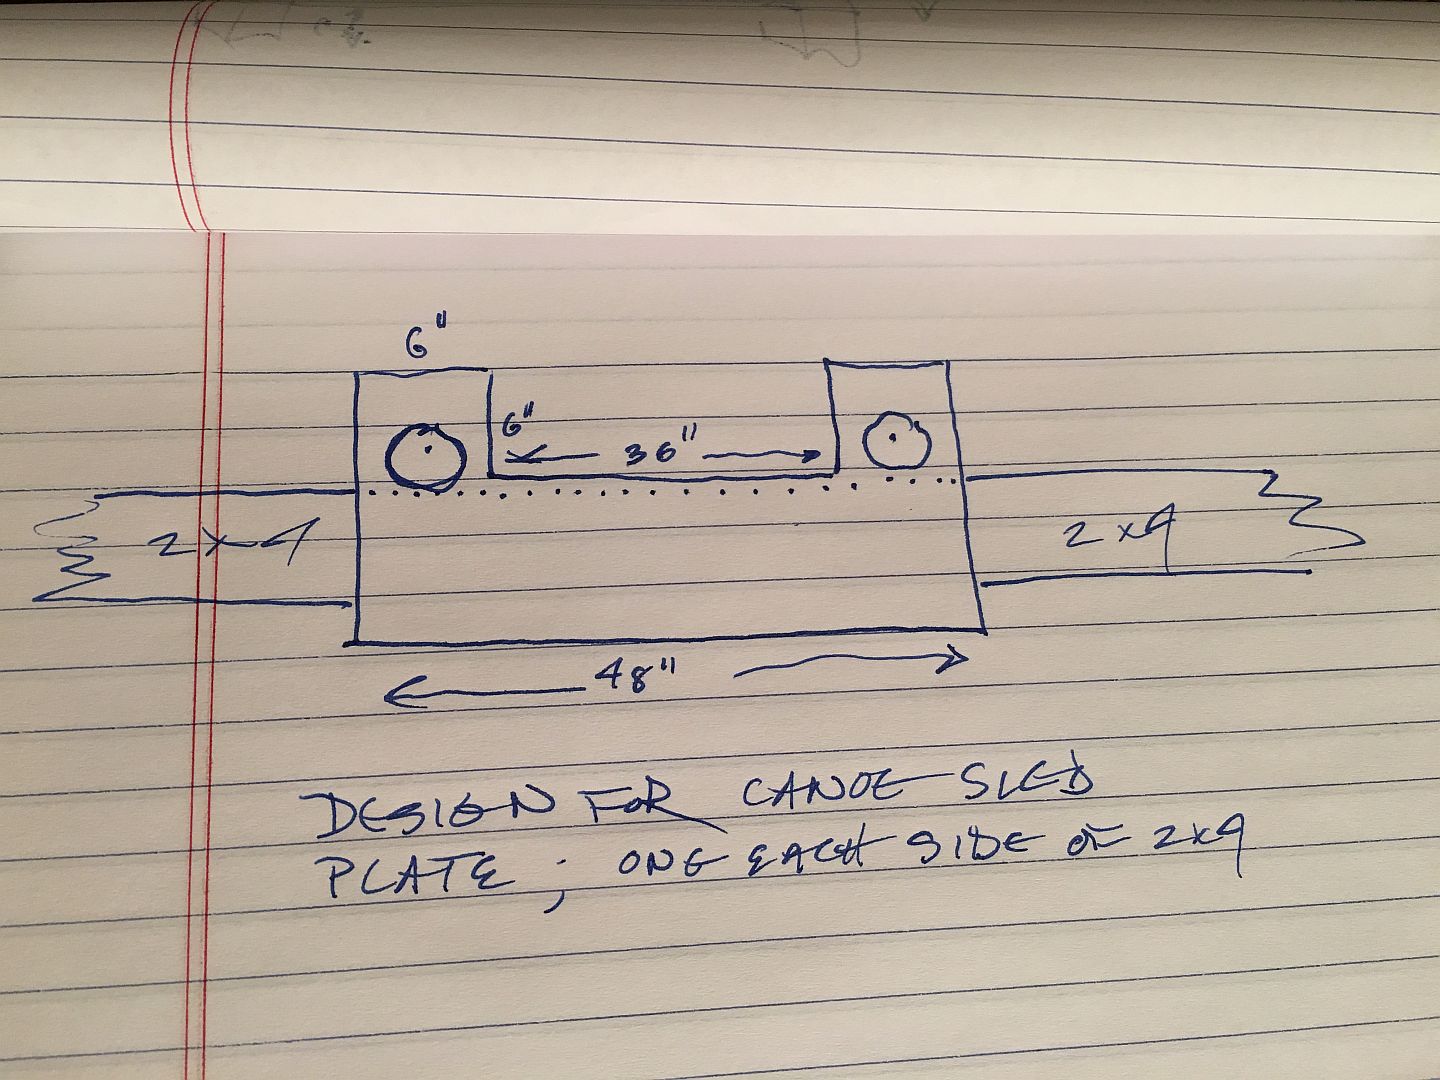 6"
6"
36"
2x4
2x4
48"
DESIGN FOR CANOE SLED
PLATE; ONE EACH SIDE OF 2x4